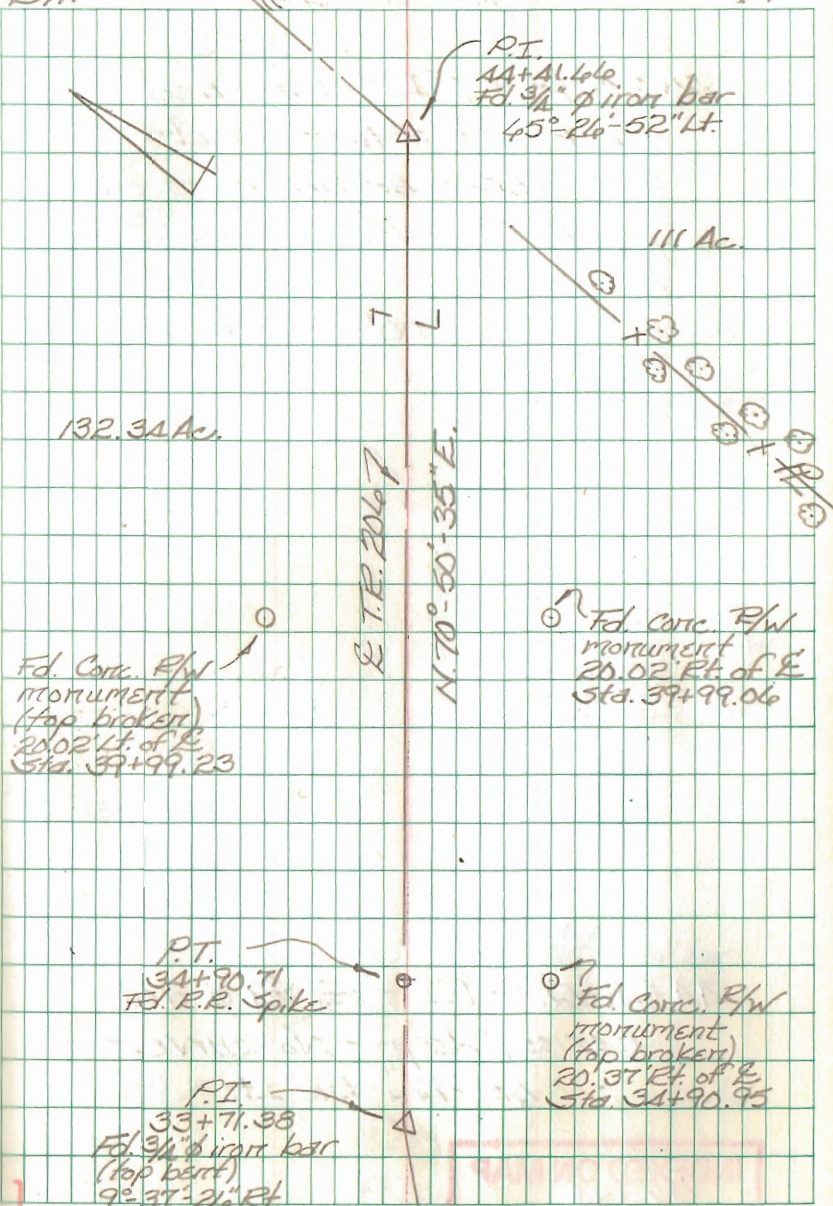 P.I.
44+41.66
Fd. 3/4" ϕ iron bar
45°-26'-52" Lt.
111 Ac.
132.34 Ac.
℄ T.R. 2067
N. 70°-50'-35" E.
Fd. Conc. R/W
monument
(top broken)
20.02' Lt. of ℄
Sta. 39+99.23
Fd. Conc. R/W
monument
20.02' Rt. of ℄
Sta. 39+99.06
P.T.
34+90.71
Fd. R.R. Spike
Fd. Conc. R/W
monument
(top broken)
20.37' Rt. of ℄
Sta. 34+90.95
P.I.
33+71.38
Fd. 3/4" ϕ iron bar
(top bent)
9°-37'-21" Rt